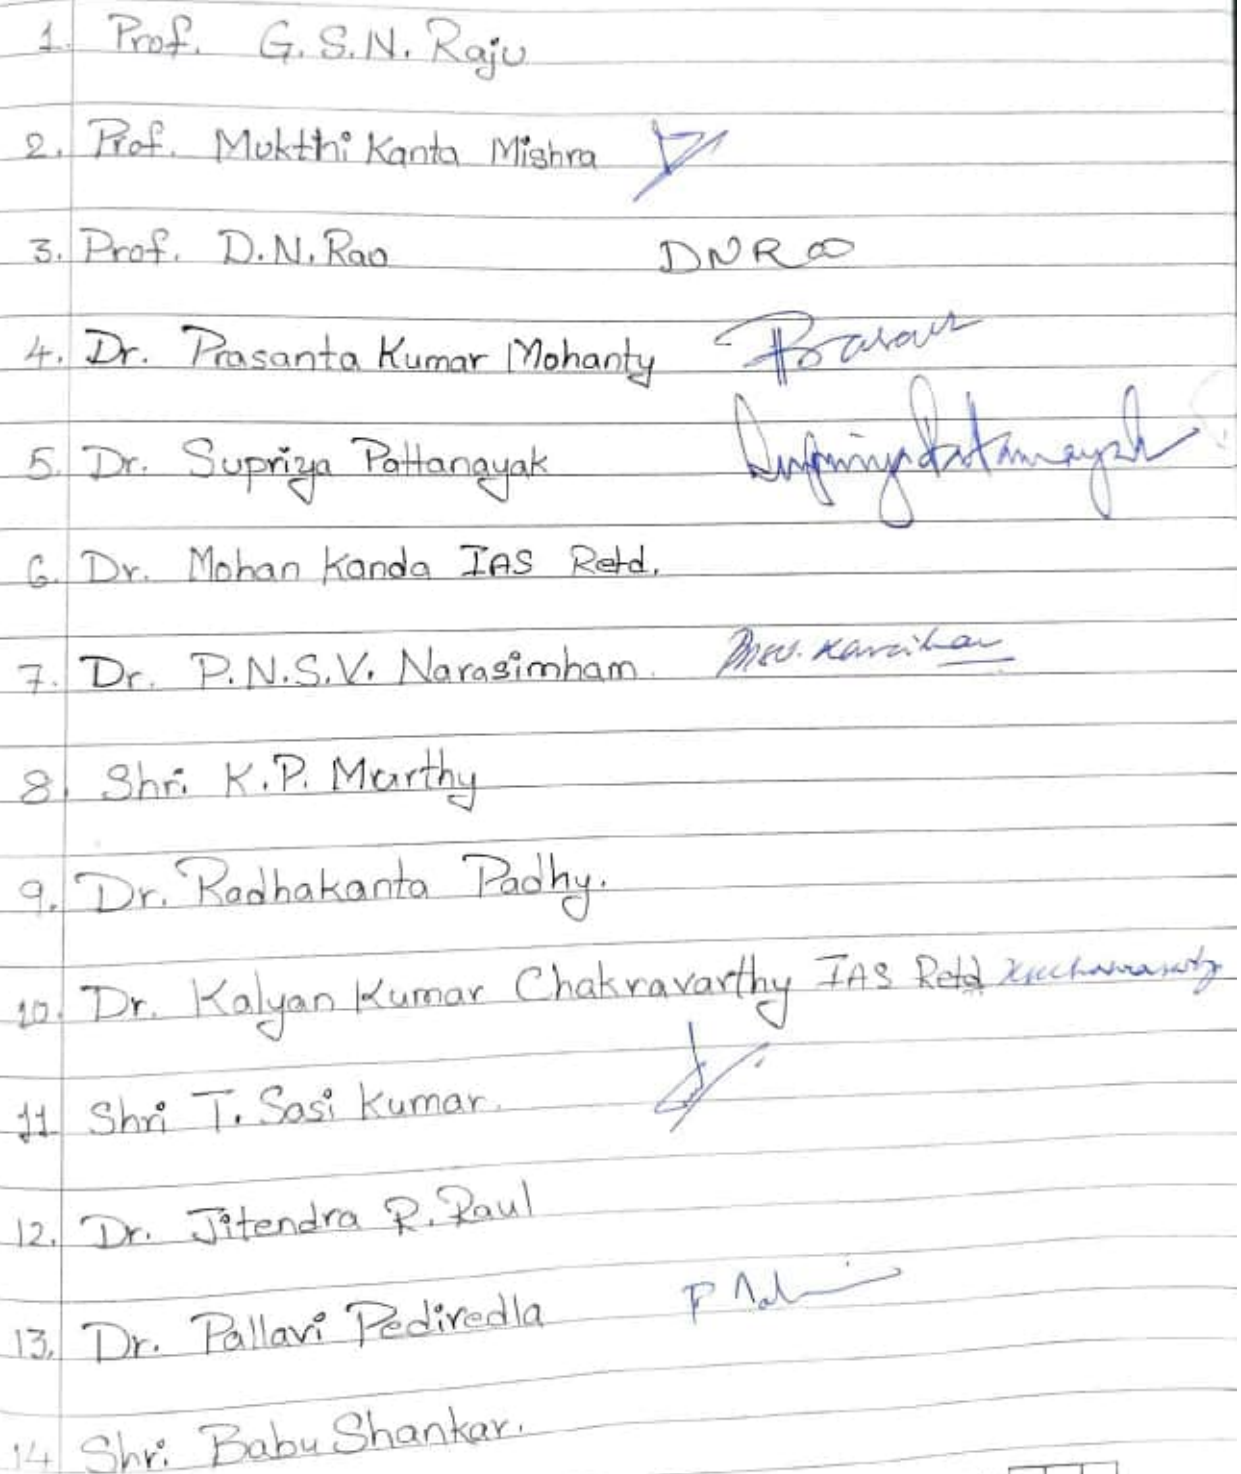 1. Prof. G.S.N. Raju
2. Prof. Mukthi Kanta Mishra
3. Prof. D.N. Rao DNRao
4. Dr. Prasanta Kumar Mohanty
5. Dr. Supriya Pattanayak Supriya Pattanayak
6. Dr. Mohan Kanda IAS Retd.
7. Dr. P.N.S.V. Narasimham.
8. Shri K.P. Murthy
9. Dr. Radhakanta Padhy.
10. Dr. Kalyan Kumar Chakravarthy IAS Retd
11. Shri T. Sasi Kumar.
12. Dr. Jitendra R. Raul
13. Dr. Pallavi Pediredla
14. Shri. Babu Shankar.